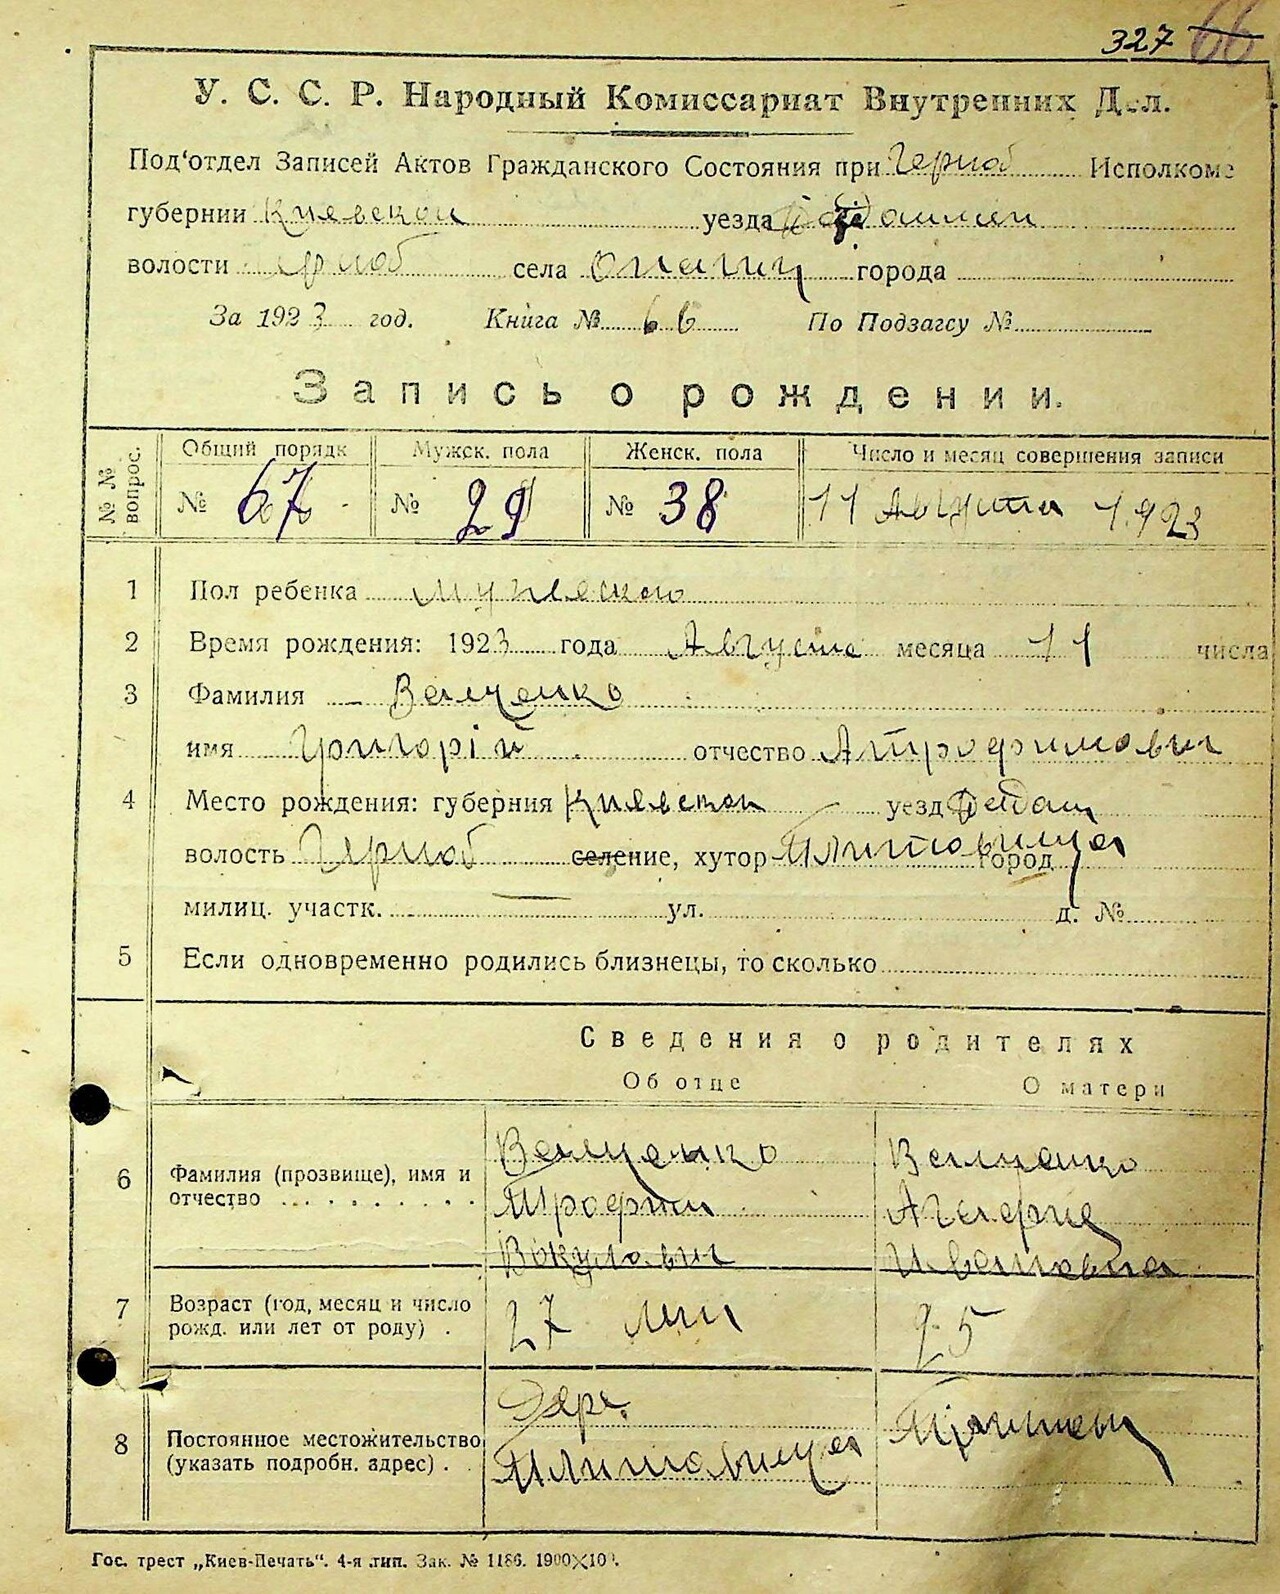 327 66
У. С. С. Р. Народный Комиссариат Внутренних Дел.
Под'отдел Записей Актов Гражданского Состояния при Черноб Исполкоме
губернии Киевской уезда
волости Черноб села Опачич города
За 1923 год. Книга № 66 По Подзагсу №
Запись о рождении.
№ № вопрос. Общий порядк Мужск. пола Женск. пола Число и месяц совершения записи
№ 67 № 29 № 38 11 Августа 1923
1 Пол ребенка мужеского
2 Время рождения: 1923 года Августа месяца 11 числа
3 Фамилия Велщенко
имя Григорій отчество Атрофимович
4 Место рождения: губерния Киевской уезд
волость Черноб селение, хутор Плитовища город
милиц. участк. ул. д. №
5 Если одновременно родились близнецы, то сколько
Сведения о родителях
Об отце О матери
6 Фамилия (прозвище), имя и отчество Велщенко Велщенко
Трофим
Вокулович Ивановна
7 Возраст (год, месяц и число рожд. или лет от роду) . 27 лит 25
8 Постоянное местожительство (указать подробн. адрес) . Дере.
Плитовища
Гос. трест „Киев-Печать". 4-я тип. Зак. № 1186. 1900×100.